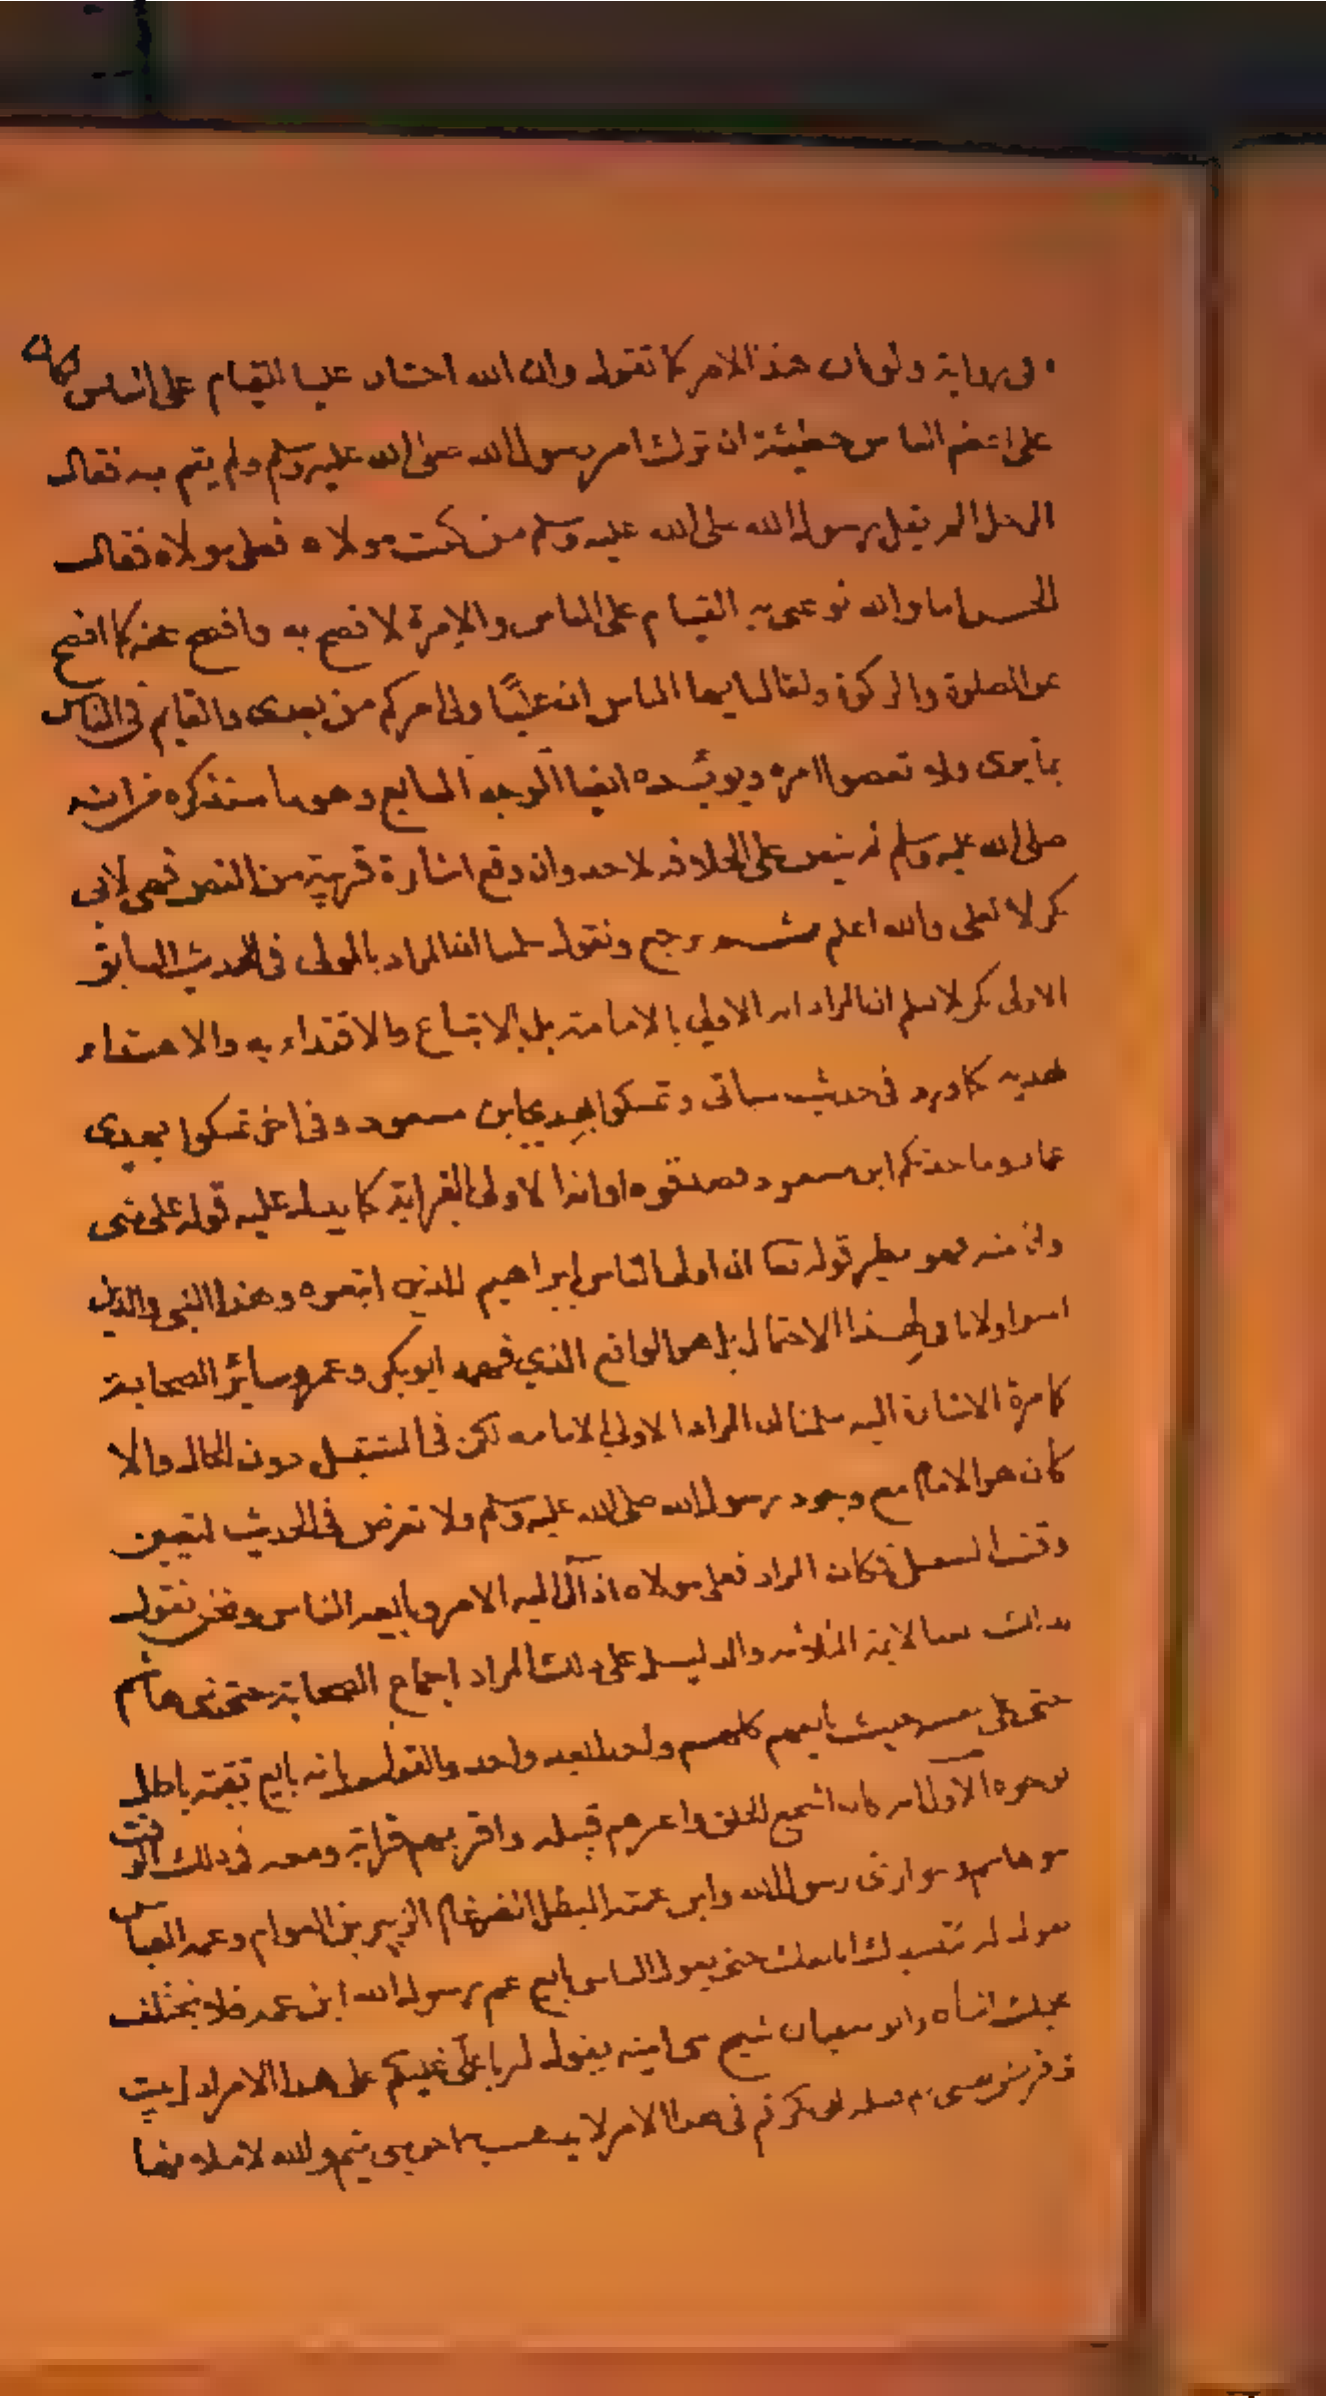 وفى رواية ولو كان هذا الامر كما تقول وان الله اختار عليا للقيام على الناس
على اعظم الناس خطيئة ان ترك امر رسول الله صلى الله عليه وسلم ولم يقم به فقال
الرجل الم يقل رسول الله صلى الله عليه وسلم من كنت مولاه فعلى مولاه فقال
الحسن اما والله لو عنى به القيام على الناس والامرة لافصح به وافصح عنه كما افصح
عن الصلوة والزكوة ولقال ايها الناس ان عليًّا ولى امركم من بعدى والقايم فى الناس
بامرى ولا تعصوا امره ويويده ايضا الوجه السابع وهو ما سنذكره من انه
صلى الله عليه وسلم لم ينص على الخلافة لاحد وان وقع اشارة قريبة من النص فهى لابى
بكر لا لعلى والله اعلم ثم نرجع ونقول سلمنا ان المراد بالمولى فى الحديث السابق
الاولى لكن لا نسلم ان المراد انه الاولى بالامامة بل بالاتباع والاقتداء به والاهتداء
بهديه كما ورد فى حديث سياتى وتمسكوا بهدى ابن مسعود وفى اخر تمسكوا بهدى
عمار وما حدثكم ابن مسعود فصدقوه او انه الاولى بالقرابة كما يدل عليه قوله على منى
وانا منه فهو نظير قوله تعا ان اولى الناس بابراهيم للذين اتبعوه وهذا النبى والذين
امنوا ولا نافى لهذا الاحتمال بل هو الواقع الذي فهمه ابو بكر وعمر وسائر الصحابة
كما مرة الاشارة اليه سلمنا ان المراد الاولى بالامامه لكن فى المستقبل دون الحال والا
كان هو الامام مع وجود رسول الله صلى الله عليه وسلم ولا تعرض فى الحديث لتعيين
وقت المستقبل فكان المراد فعلى مولاه اذ آل اليه الامر وبايعه الناس ونحن نقول
بذلك بعد الايمة الثلاثه والدليل على ذلك المراد اجماع الصحابة حتى بنى هاشم
حتى على نفسه حيث بايعهم كلهم واحدا بعد واحد والقول بانه بايع تقية باطل
من وجوه الاول انه كان اشجع الخلق واعزهم قبيله واقربهم قرابة ومعه فى ذلك الوقت
بنو هاشم وحوارى رسول الله وابن عمته البطل الضرغام الزبير بن العوام وعمه العباس
يقول له مد يدك ابايعك حتى يقول الناس بايع عم رسول الله ابن عمه فلا يختلف
عليك اثنان وابو سفيان شيخ بنى امية يقول له يا على غلبكم على هذا الامر ارذل بيت
فى قريش يعنى تيم قبيلة ابى بكر ثم فى هذا الامر لا يذهب به اخو بنى تيم والله لاملانها